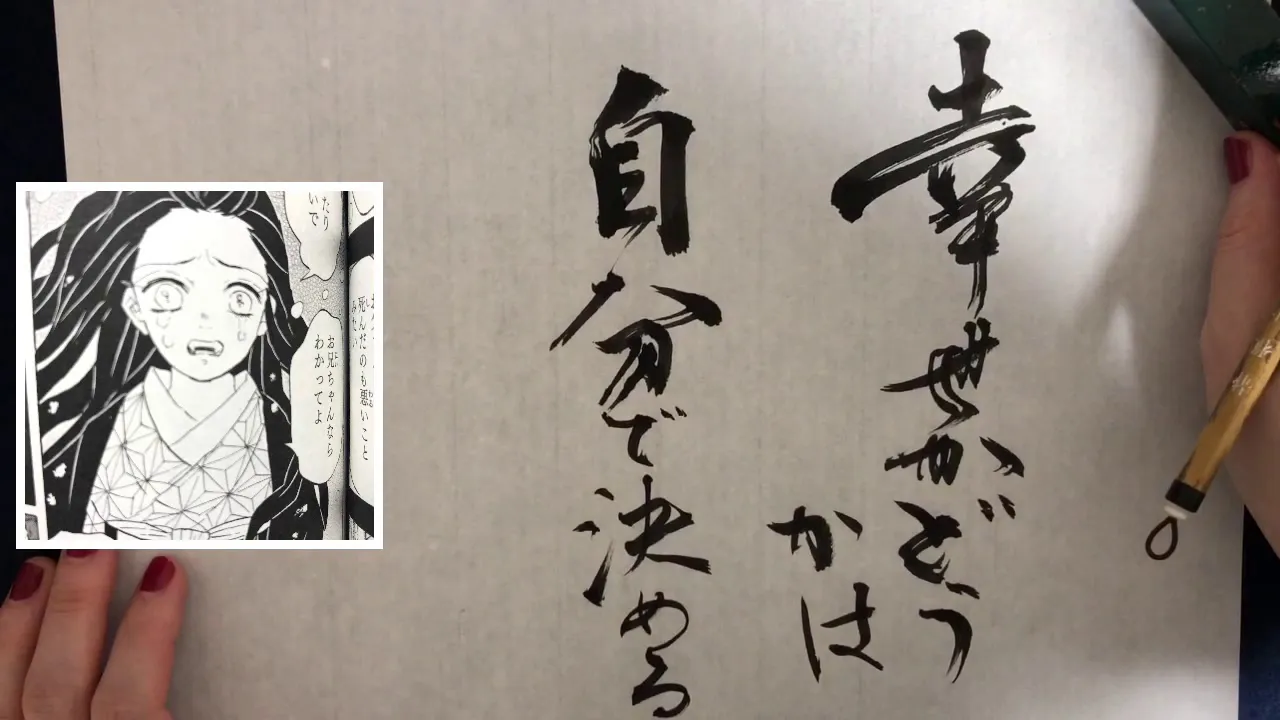 幸せかどう
かは
自分で決める
たり
いで
お兄ちゃんなら
わかってよ
死んだのも悪いこと
みたい